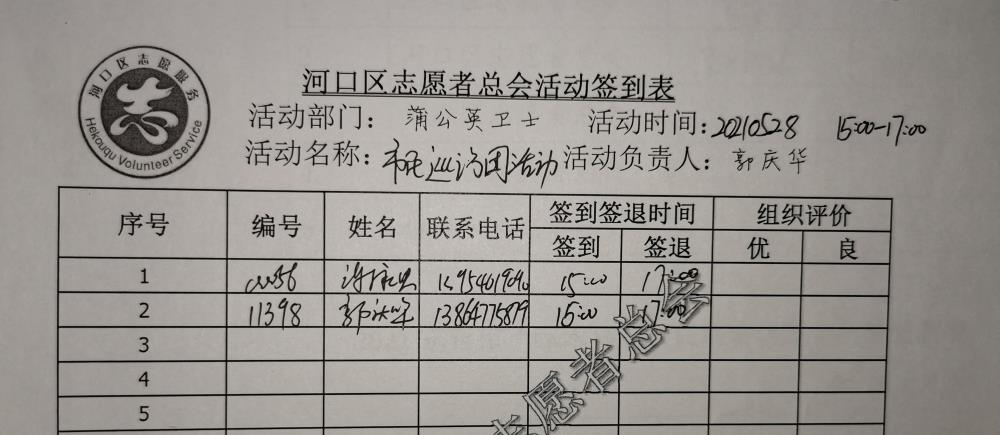 河口区志愿服务
Hekouqu Volunteer Service
志
河口区志愿者总会活动签到表
活动部门: 蒲公英卫士 活动时间: 20210528 15:00-17:00
活动名称: 市民巡访团活动 活动负责人: 郭庆华
序号 编号 姓名 联系电话 签到签退时间 组织评价
签到 签退 优 良
1 15:00 17:00
2 11398 13864775879 15:00 17:00
3
4
5
志愿者总会